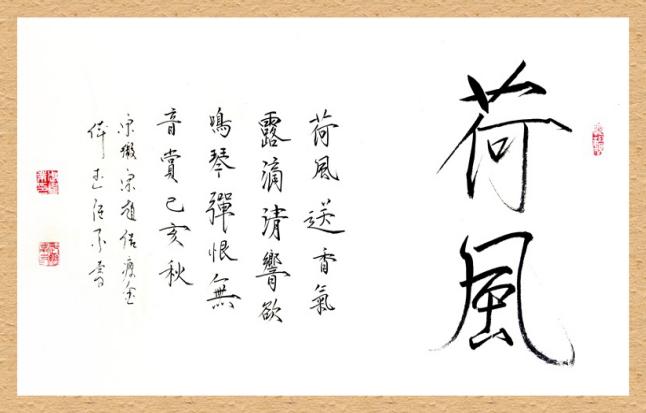 荷風
荷風送香氣
露滴清響欲
鳴琴彈恨無
音賞己亥秋
宋徽宗趙佶瘦金
偉
書